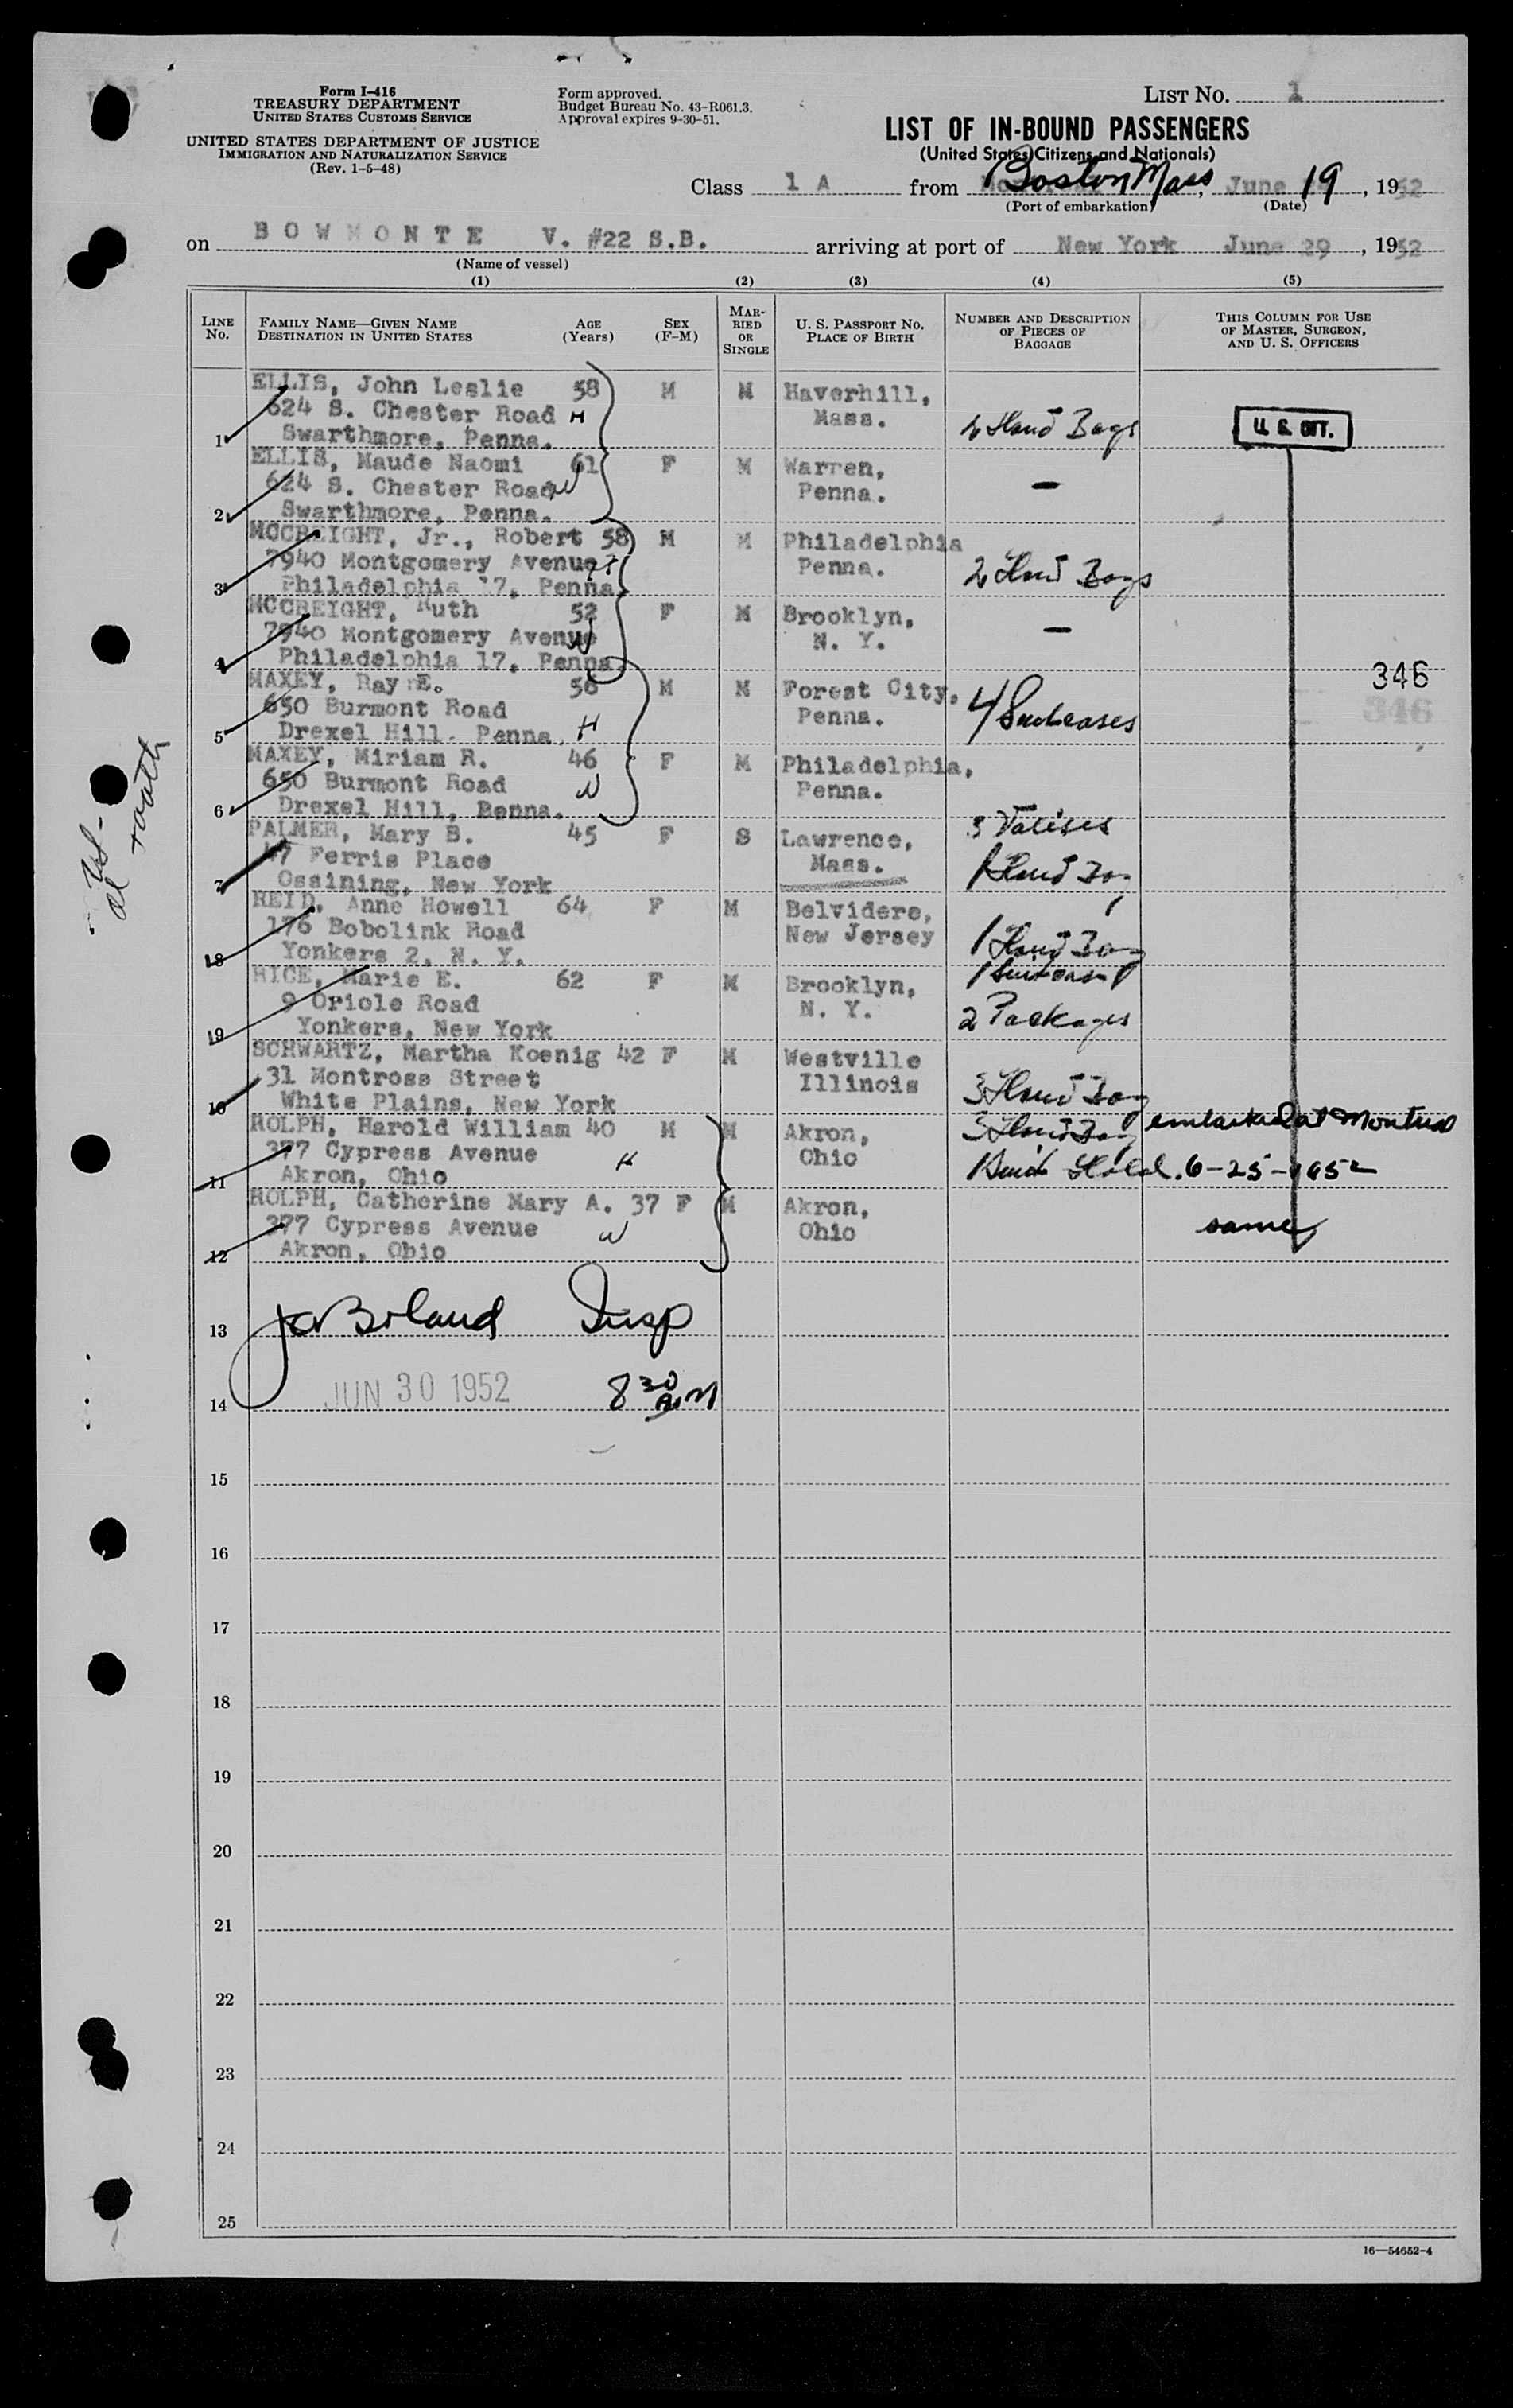 Form I-416
TREASURY DEPARTMENT
UNITED STATES CUSTOMS SERVICE
UNITED STATES DEPARTMENT OF JUSTICE
IMMIGRATION AND NATURALIZATION SERVICE
(Rev. 1-5-48)
Form approved.
Budget Bureau No. 43-R061.3.
Approval expires 9-30-51.
LIST NO. 1
LIST OF IN-BOUND PASSENGERS
(United States Citizens and Nationals)
Class 1 A from Boston Mass, June 19, 1952
(Port of embarkation) (Date)
on BOWMONTE V. #22 S.B. arriving at port of New York June 29, 1952
(Name of vessel)
(1) (2) (3) (4) (5)
LINE NO. FAMILY NAME—GIVEN NAME DESTINATION IN UNITED STATES AGE (Years) SEX (F-M) MARRIED OR SINGLE U. S. PASSPORT NO. PLACE OF BIRTH NUMBER AND DESCRIPTION OF PIECES OF BAGGAGE THIS COLUMN FOR USE OF MASTER, SURGEON, AND U. S. OFFICERS
ELLIS, John Leslie 58 M M Haverhill,
624 S. Chester Road H Mass.
1 Swarthmore, Penna. 4 Hand Bags U. S. CIT.
ELLIS, Maude Naomi 61 F M Warren,
624 S. Chester Road W Penna. —
2 Swarthmore, Penna.
MCCREIGHT, Jr., Robert 58 M M Philadelphia
7940 Montgomery Avenue H Penna. 2 Hand Bags
3 Philadelphia 17, Penna.
MCCREIGHT, Ruth 52 F M Brooklyn,
7940 Montgomery Avenue W N. Y. —
4 Philadelphia 17, Penna.
346
MAXEY, Ray E. 56 M M Forest City,
650 Burmont Road Penna. 4 Suitcases
346
5 Drexel Hill, Penna. H
MAXEY, Miriam R. 46 F M Philadelphia,
650 Burmont Road W Penna.
6 Drexel Hill, Penna.
PALMER, Mary B. 45 F S Lawrence, 3 Valises
47 Ferris Place Mass. 1 Hand Bag
7 Ossining, New York
REID, Anne Howell 64 F M Belvidere,
176 Bobolink Road New Jersey 1 Hand Bag
8 Yonkers 2, N. Y.
RICE, Marie E. 62 F M Brooklyn, 1 Suitcase
9 Oriole Road N. Y. 2 Packages
9 Yonkers, New York
SCHWARTZ, Martha Koenig 42 F M Westville
31 Montross Street Illinois 3 Hand Bag
10 White Plains, New York
ROLPH, Harold William 40 M M Akron, 3 Hand Bag embarked at Montreal
377 Cypress Avenue H Ohio Hold. 6-25-1952
11 Akron, Ohio
ROLPH, Catherine Mary A. 37 F M Akron,
377 Cypress Avenue W Ohio same
12 Akron, Ohio
13 Boland Insp
14 JUN 30 1952 8 30 A.M
15
16
17
18
19
20
21
22
23
24
25
16—54652-4